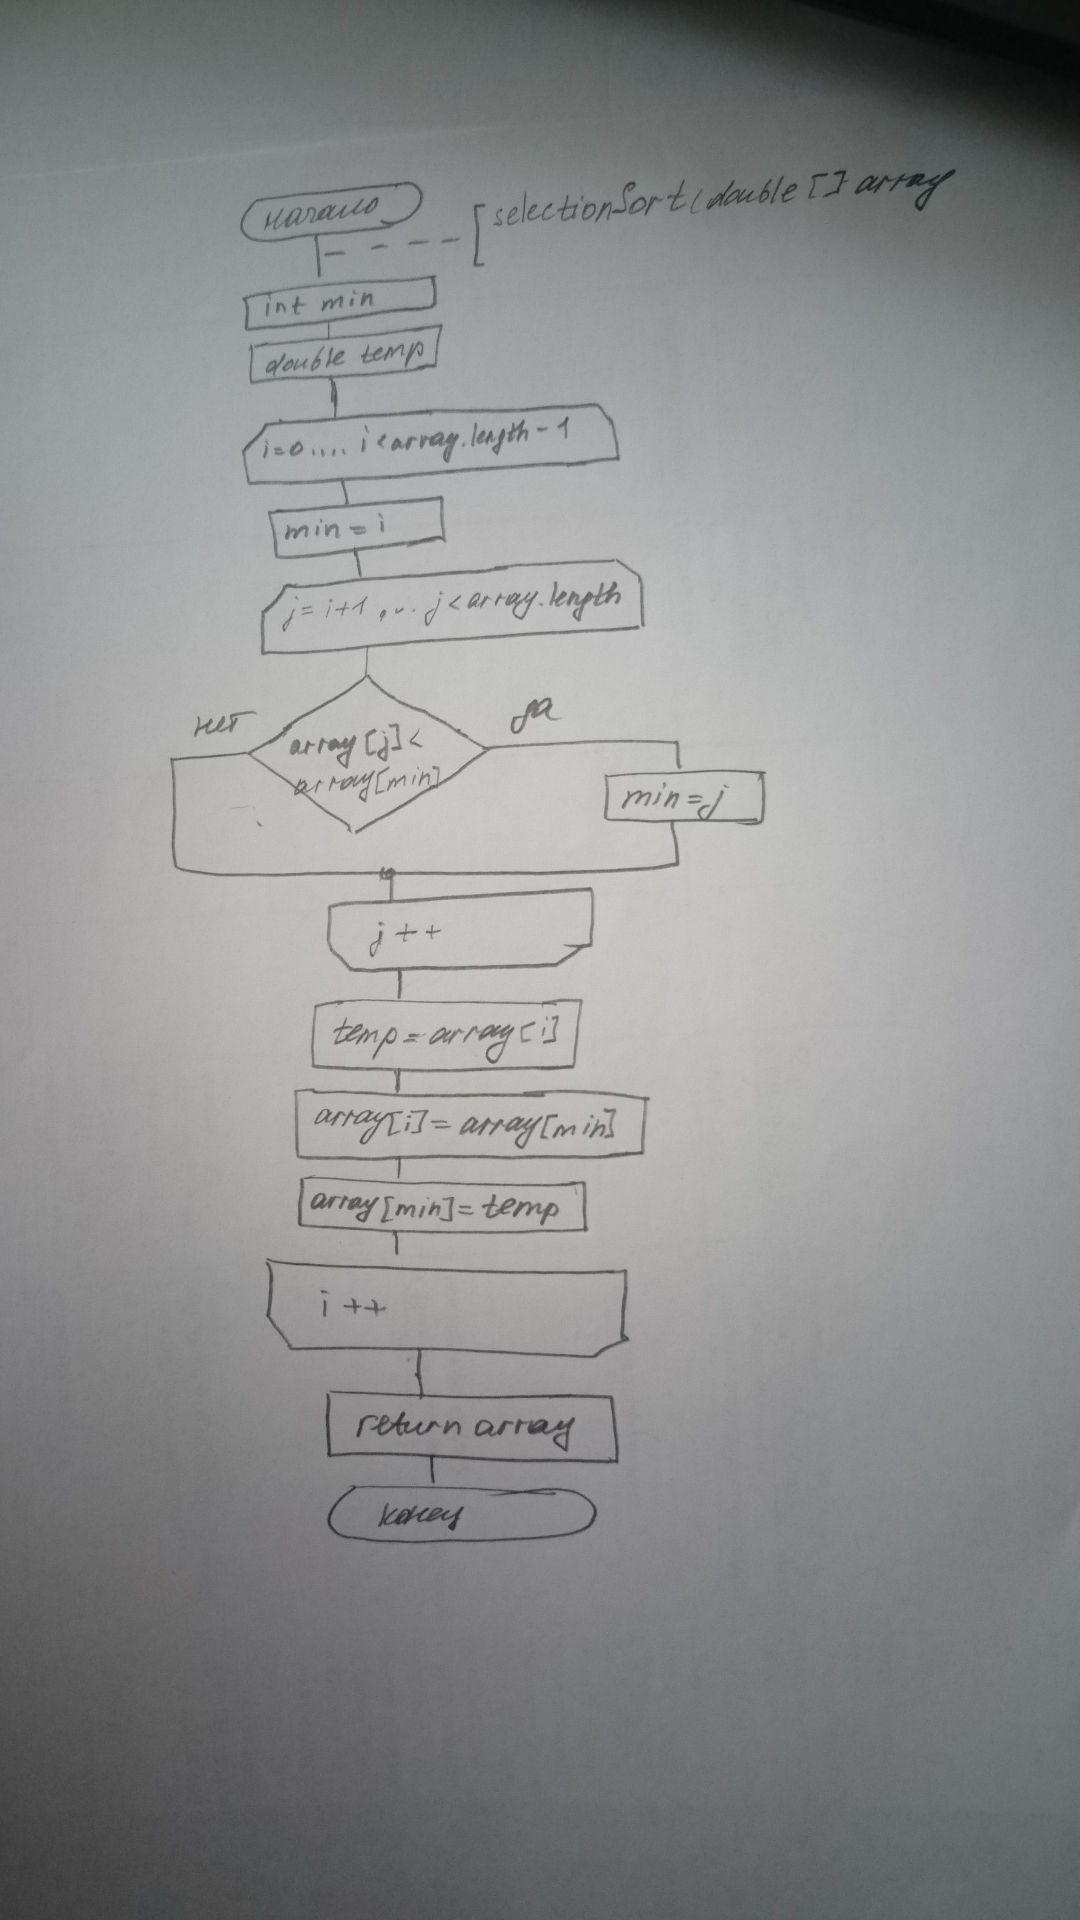 начало
selectionSort(double[] array
int min
double temp
i=0.... i<array.length-1
min = i
j= i+1 ,... j<array.length
нет
да
array[j]<
array[min]
min=j
j++
temp=array[i]
array[i]=array[min]
array[min]=temp
i++
return array
конец